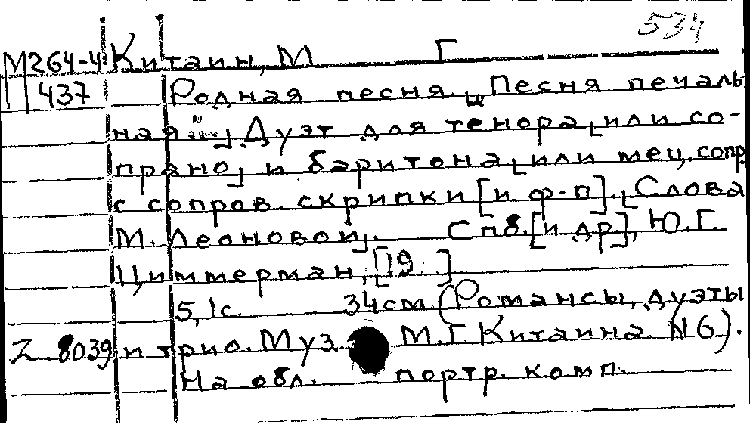 534
М264-4 Китаин, М Г
П 437 Родная песня. „Песня печаль
ная ..." Дуэт для тенора [или со-
прано] и баритона [или мец. сопр
с сопров. скрипки [и ф-п]. [Слова
М. Леоновой]. Спб. [и др], Ю. Г.
Циммерман, [19 ]
5, 1с. 34см (Романсы, дуэты
Z 8039 и трио. Муз. М. Г. Китаина N 6).
На обл. портр. комп.